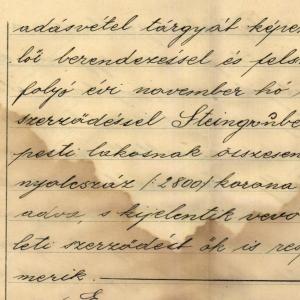 adásvétel tárgyát képe
lői berendezéssel és fels
folyó évi november hó
szerződéssel Steingrube
pesti lakosnak összesen
nyolcszáz /:2800/ korona
adva, s kijelentik vevo
leti szerződést ők is re
merik.